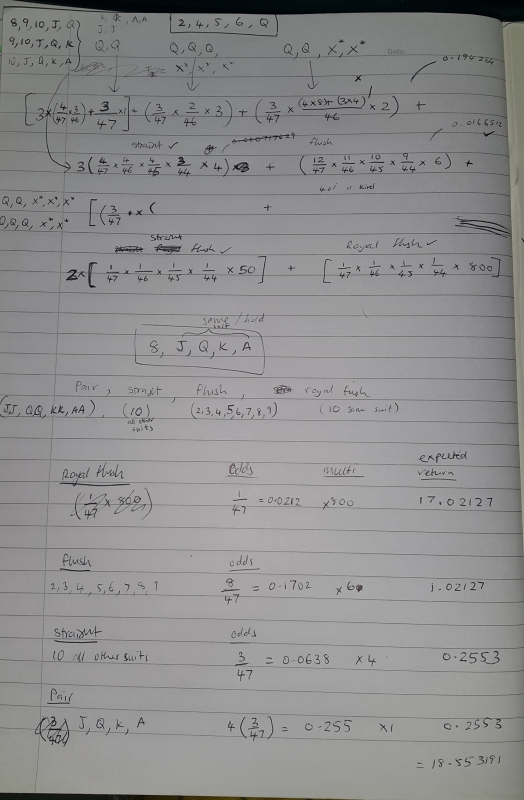 8, 9, 10, J, Q
9, 10, J, Q, K
10, J, Q, K, A
A, A
J, J
Q, Q
Q, Q, Q,
x*, x*, x*
2, 4, 5, 6, Q
Q, Q, x*, x*
0.194264
[3 x (4/47 x 3/46) + 3/47 x1] + (3/47 x 2/46 x 3) + (3/47 x (4x8)+(3x4)/46 x 2) +
0.0166512
straint ✓
flush
3(4/47 x 4/46 x 4/45 x 3/44 x 4) + (12/47 x 11/46 x 10/45 x 9/44 x 6) +
4 of a kind
Q, Q, x*, x*, x*
Q, Q, Q, x*, x*
[(3/47 + x ( +
straint flush ✓
Royal flush ✓
2x[1/47 x 1/46 x 1/45 x 1/44 x 50] + [1/47 x 1/46 x 1/45 x 1/44 x 800]
same suit / hold
8, J, Q, K, A
Pair, straint, flush, royal flush
(JJ, QQ, KK, AA), (10) (2,3,4,5,6,7,8,9) (10 same suit)
all other suits
Royal flush odds multi expected return
(1/47 x 800) 1/47 = 0.0212 x800 17.02127
flush odds
2, 3, 4, 5, 6, 7, 8, 9 8/47 = 0.1702 x6 1.02127
straight odds
10 all other suits 3/47 = 0.0638 x4 0.2553
Pair
J, Q, K, A 4(3/47) = 0.255 x1 0.2553
= 18.553191